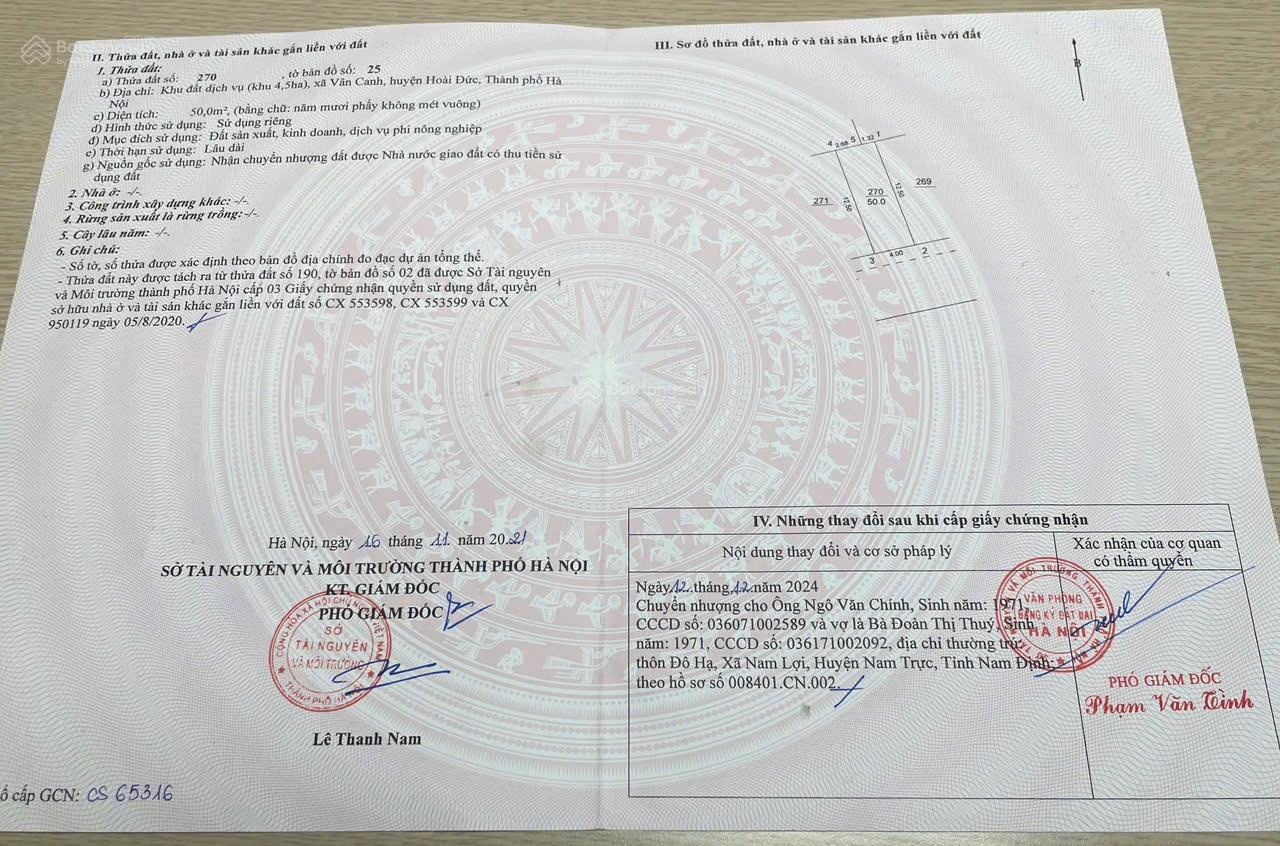 II. Thửa đất, nhà ở và tài sản khác gắn liền với đất
1. Thửa đất:
a) Thửa đất số: 270 , tờ bản đồ số: 25
b) Địa chỉ: Khu đất dịch vụ (khu 4,5ha), xã Vân Canh, huyện Hoài Đức, Thành phố Hà
Nội
c) Diện tích: 50,0m², (bằng chữ: năm mươi phẩy không mét vuông)
d) Hình thức sử dụng: Sử dụng riêng
đ) Mục đích sử dụng: Đất sản xuất, kinh doanh, dịch vụ phi nông nghiệp
e) Thời hạn sử dụng: Lâu dài
g) Nguồn gốc sử dụng: Nhận chuyển nhượng đất được Nhà nước giao đất có thu tiền sử
dụng đất
2. Nhà ở: -/-.
3. Công trình xây dựng khác: -/-.
4. Rừng sản xuất là rừng trồng:-/-.
5. Cây lâu năm: -/-.
6. Ghi chú:
- Số tờ, số thửa được xác định theo bản đồ địa chính đo đạc dự án tổng thể.
- Thửa đất này được tách ra từ thửa đất số 190, tờ bản đồ số 02 đã được Sở Tài nguyên
và Môi trường thành phố Hà Nội cấp 03 Giấy chứng nhận quyền sử dụng đất, quyền
sở hữu nhà ở và tài sản khác gắn liền với đất số CX 553598, CX 553599 và CX
950119 ngày 05/8/2020.
Hà Nội, ngày 16 tháng 11 năm 2021
SỞ TÀI NGUYÊN VÀ MÔI TRƯỜNG THÀNH PHỐ HÀ NỘI
KT. GIÁM ĐỐC
PHÓ GIÁM ĐỐC
CỘNG HÒA XÃ HỘI CHỦ NGHĨA VIỆT NAM
SỞ
TÀI NGUYÊN
VÀ MÔI TRƯỜNG
THÀNH PHỐ HÀ NỘI
Lê Thanh Nam
ổ cấp GCN: CS 65316
III. Sơ đồ thửa đất, nhà ở và tài sản khác gắn liền với đất
B
4 2.68 5 1.32 1
271 12.50 270 12.50 269
50.0
3 4.00 2
IV. Những thay đổi sau khi cấp giấy chứng nhận
Nội dung thay đổi và cơ sở pháp lý
Xác nhận của cơ quan
có thẩm quyền
Ngày 12 tháng 12 năm 2024
Chuyển nhượng cho Ông Ngô Văn Chính, Sinh năm: 1971,
CCCD số: 036071002589 và vợ là Bà Đoàn Thị Thuý, Sinh
năm: 1971, CCCD số: 036171002092, địa chỉ thường trú:
thôn Đô Hạ, Xã Nam Lợi, Huyện Nam Trực, Tỉnh Nam Định;
theo hồ sơ số 008401.CN.002.
VĂN PHÒNG
ĐĂNG KÝ ĐẤT ĐAI
HÀ NỘI
PHÓ GIÁM ĐỐC
Phạm Văn Tình